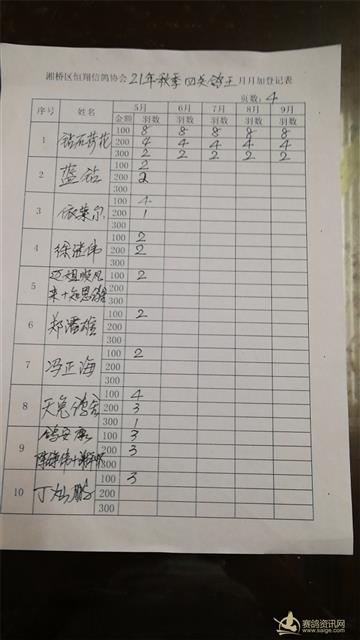 湘桥区恒翔信鸽协会21年秋季四关鸽王月月加登记表
页数：4
序号 姓名 5月 6月 7月 8月 9月
金额 羽数 羽数 羽数 羽数 羽数
1 钻石荷花 100 8 8 8 8 8
200 4 4 4 4 4
300 2 2 2 2 2
2 蓝钻 100 2
200 2
300
3 依莱尔 100 4
200 1
300
4 徐继伟 100 2
200 2
300
5 迈祖顺凡 100 2
来+知恩鸽舍 200
300
6 郑 雄 100 2
200
300
7 冯正海 100 2
200
300
8 天兔鸽舍 100 4
200 3
300 1
9 鸽安康 100 3
200 3
300
10 丁灿鹏 100 3
200
300
赛鸽资讯网
www.saige.com